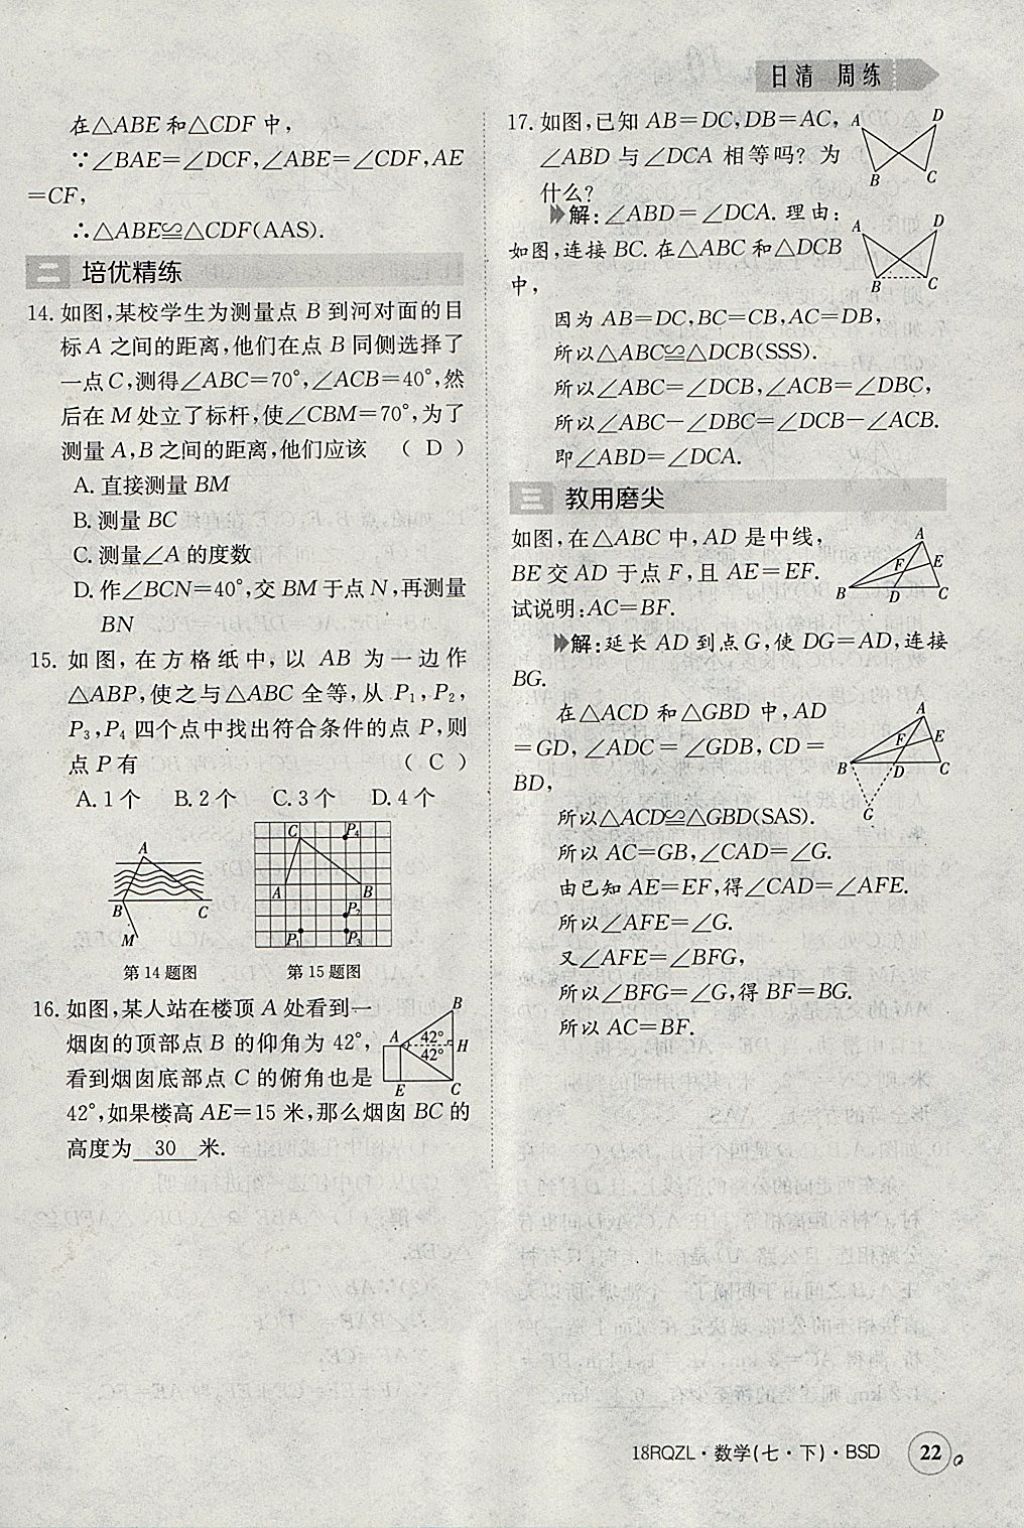 日清 周练
在△ABE和△CDF中,
∵∠BAE=∠DCF,∠ABE=∠CDF,AE
=CF,
∴△ABE≌△CDF(AAS).
二 培优精练
14.如图,某校学生为测量点B到河对面的目
标A之间的距离,他们在点B同侧选择了
一点C,测得∠ABC=70°,∠ACB=40°,然
后在M处立了标杆,使∠CBM=70°,为了
测量A,B之间的距离,他们应该 (D)
A.直接测量BM
B.测量BC
C.测量∠A的度数
D.作∠BCN=40°,交BM于点N,再测量
BN
15.如图,在方格纸中,以AB为一边作
△ABP,使之与△ABC全等,从P₁,P₂,
P₃,P₄四个点中找出符合条件的点P,则
点P有 (C)
A.1个 B.2个 C.3个 D.4个
A
B C
M
第14题图
C P₄
A B
P₂
P₁ P₃
第15题图
16.如图,某人站在楼顶A处看到一
烟囱的顶部点B的仰角为42°,
看到烟囱底部点C的俯角也是
42°,如果楼高AE=15米,那么烟囱BC的
高度为 30 米.
B
A 42° H
42°
E C
17.如图,已知AB=DC,DB=AC,
∠ABD与∠DCA相等吗?为
什么?
A D
B C
解:∠ABD=∠DCA.理由:
如图,连接BC.在△ABC和△DCB
中,
A D
B C
因为AB=DC,BC=CB,AC=DB,
所以△ABC≌△DCB(SSS).
所以∠ABC=∠DCB,∠ACB=∠DBC,
所以∠ABC-∠DBC=∠DCB-∠ACB.
即∠ABD=∠DCA.
三 教用磨尖
如图,在△ABC中,AD是中线,
BE交AD于点F,且AE=EF.
试说明:AC=BF.
A
F E
B D C
解:延长AD到点G,使DG=AD,连接
BG.
在△ACD和△GBD中,AD
=GD,∠ADC=∠GDB,CD=
BD,
A
F E
B D C
G
所以△ACD≌△GBD(SAS).
所以AC=GB,∠CAD=∠G.
由已知AE=EF,得∠CAD=∠AFE.
所以∠AFE=∠G.
又∠AFE=∠BFG,
所以∠BFG=∠G,得BF=BG.
所以AC=BF.
18RQZL·数学(七·下)·BSD 22